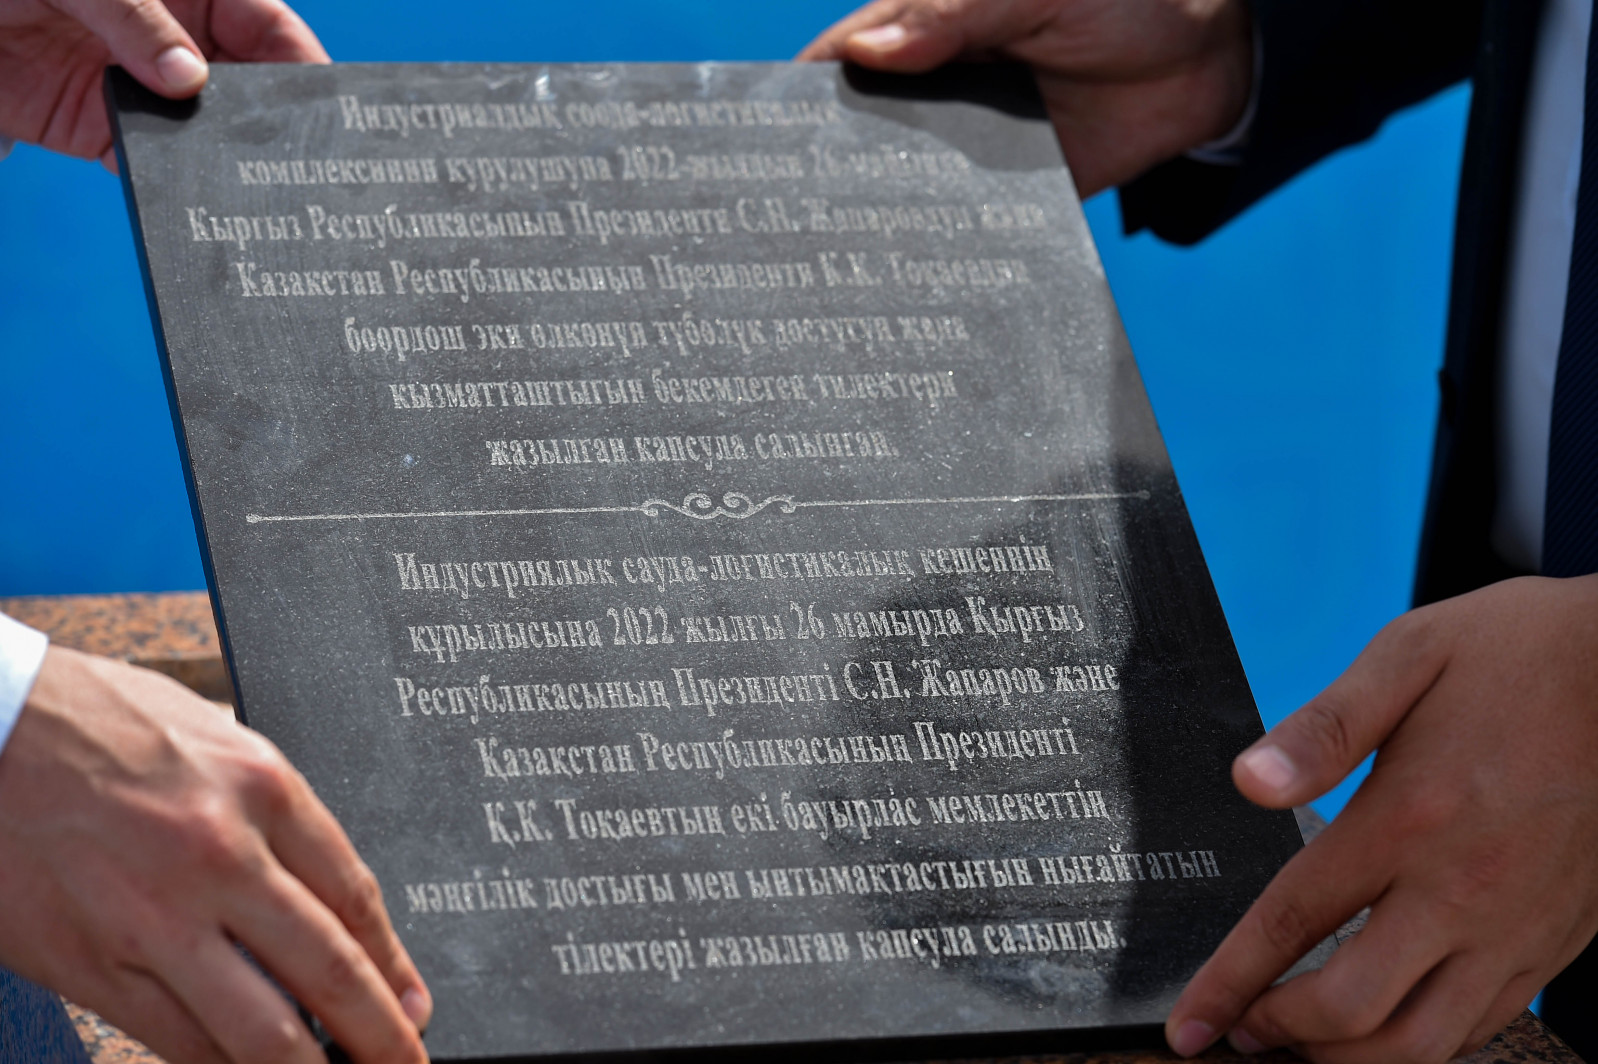 Индустриалдык соода-логистикалык
комплексинин курулушуна 2022-жылдын 26-майында
Кыргыз Республикасынын Президенти С.Н. Жапаровдун жана
Казакстан Республикасынын Президенти К.К. Токаевдин
боордош эки өлкөнүн түбөлүк достугун жана
кызматташтыгын бекемдеген тилектери
жазылган капсула салынган.
Индустриялық сауда-логистикалық кешеннің
құрылысына 2022 жылғы 26 мамырда Қырғыз
Республикасының Президенті С.Н. Жапаров және
Қазақстан Республикасының Президенті
Қ.К. Тоқаевтың екі бауырлас мемлекеттің
мәңгілік достығы мен ынтымақтастығын нығайтатын
тілектері жазылған капсула салынды.